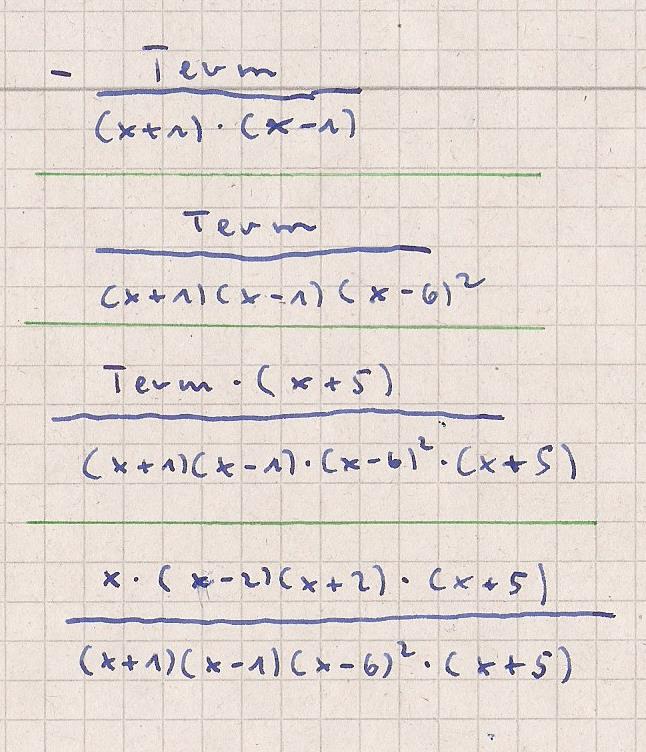 - Term
(x+1)·(x-1)
Term
(x+1)(x-1)(x-6)²
Term·(x+5)
(x+1)(x-1)·(x-6)²·(x+5)
x·(x-2)(x+2)·(x+5)
(x+1)(x-1)(x-6)²·(x+5)